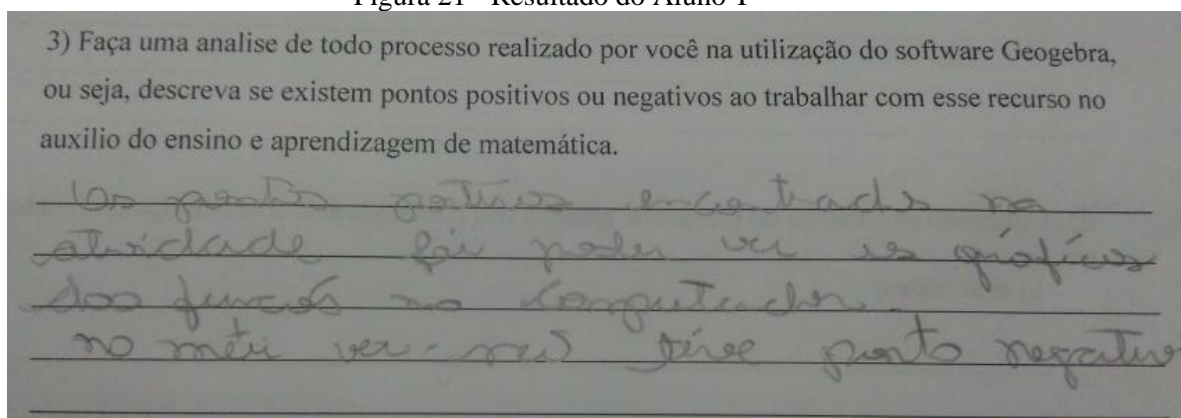 Figura 21 - Resultado do Aluno T
3) Faça uma analise de todo processo realizado por você na utilização do software Geogebra,
ou seja, descreva se existem pontos positivos ou negativos ao trabalhar com esse recurso no
auxilio do ensino e aprendizagem de matemática.
Os pontos positivos encontrados na
atividade foi poder ver os gráficos
das funções no computador.
no meu ver - não teve ponto negativo